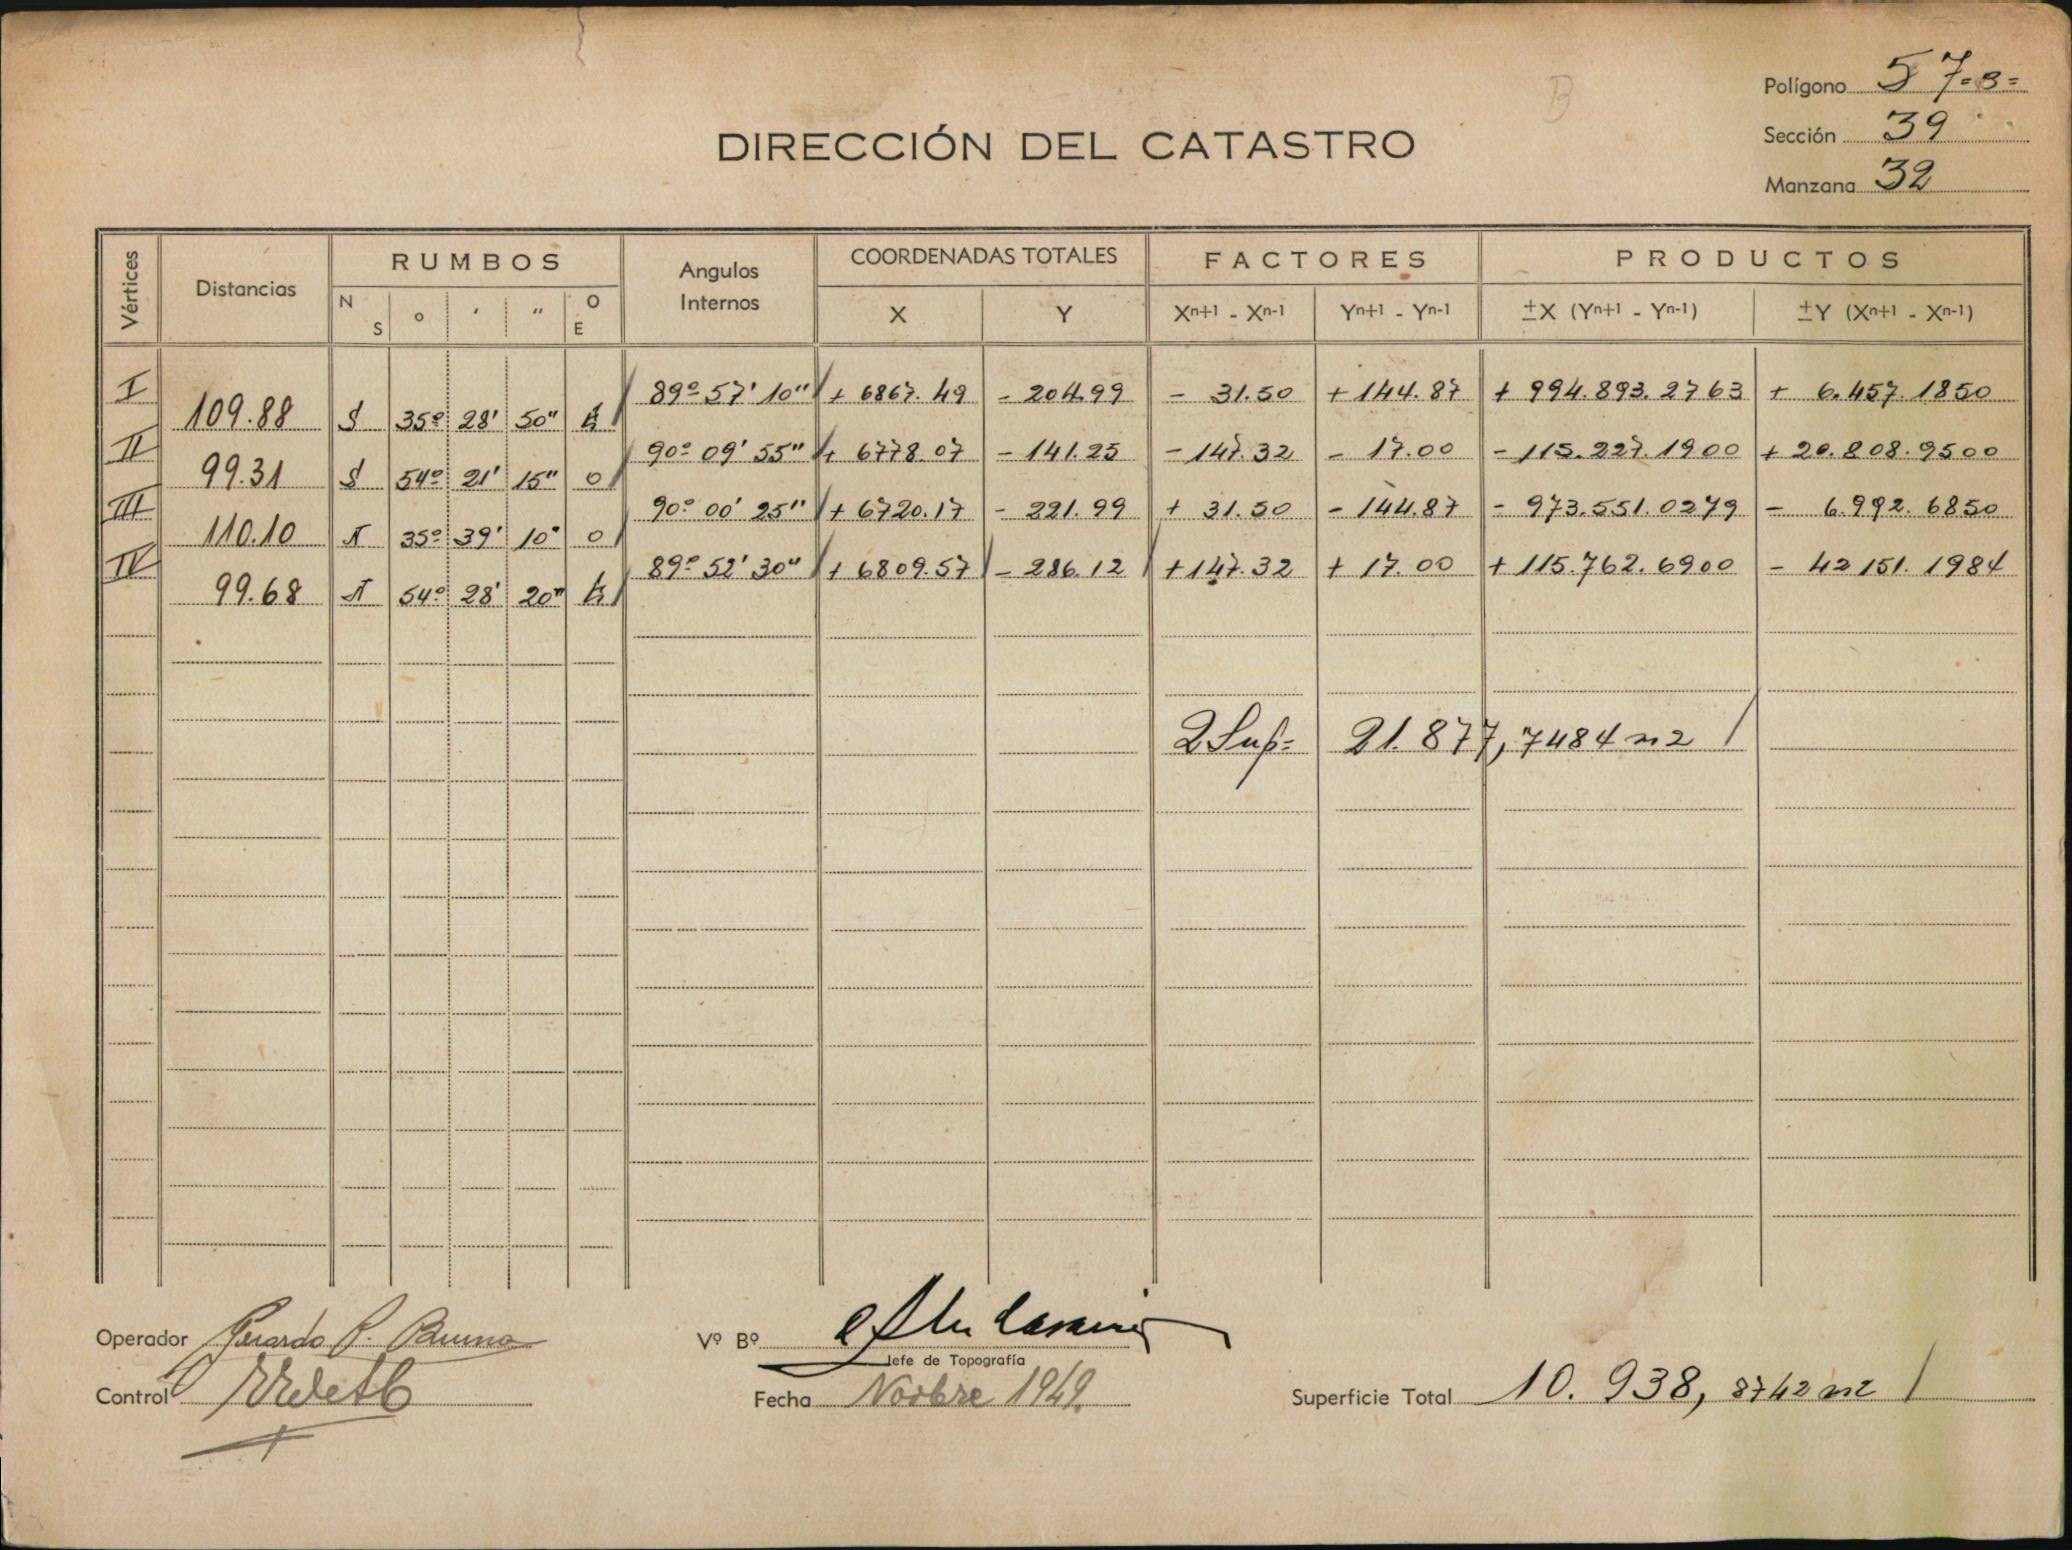 B
Polígono 57-B-
DIRECCIÓN DEL CATASTRO
Sección 39
Manzana 32
Vértices Distancias RUMBOS Angulos Internos COORDENADAS TOTALES FACTORES PRODUCTOS
N S o ' " O E X Y Xn+1 - Xn-1 Yn+1 - Yn-1 ±X (Yn+1 - Yn-1) ±Y (Xn+1 - Xn-1)
I 89º 57' 10" + 6867.49 - 204.99 - 31.50 + 144.87 + 994.893.2763 + 6.457.1850
109.88 S 35º 28' 50" E
II 90º 09' 55" + 6778.07 - 141.25 - 147.32 - 17.00 - 115.227.1900 + 20.808.9500
99.31 S 54º 21' 15" O
III 90º 00' 25" + 6720.17 - 221.99 + 31.50 - 144.87 - 973.551.0279 - 6.992.6850
110.10 N 35º 39' 10" O
IV 89º 52' 30" + 6809.57 - 286.12 + 147.32 + 17.00 + 115.762.6900 - 42151.1984
99.68 N 54º 28' 20" E
2 Sup= 21.877,7484 m2
Operador Gerardo R.
Vº Bº
Jefe de Topografía
Control
Fecha Novbre 1949.
Superficie Total 10.938,8742 m2